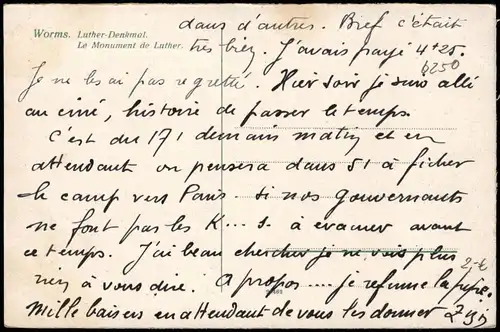 dans d'autres. Bref c'était
Worms. Luther-Denkmal.
Le Monument de Luther.
très bien. J'avais payé 4+25.
6250
Je ne les ai pas regretté. Hier soir je suis allé
au ciné, histoire de passer le temps.
C'est du 171 demain matin et en
attendant on pensera dans 51 à ficher
le camp vers Paris si nos gouvernants
ne font pas les K...s. à évacuer avant
ce temps. J'ai beau chercher je ne vois plus
rien à vous dire. A propos.... je refume la pipe.
2,-€
Mille baisers en attendant de vous les donner